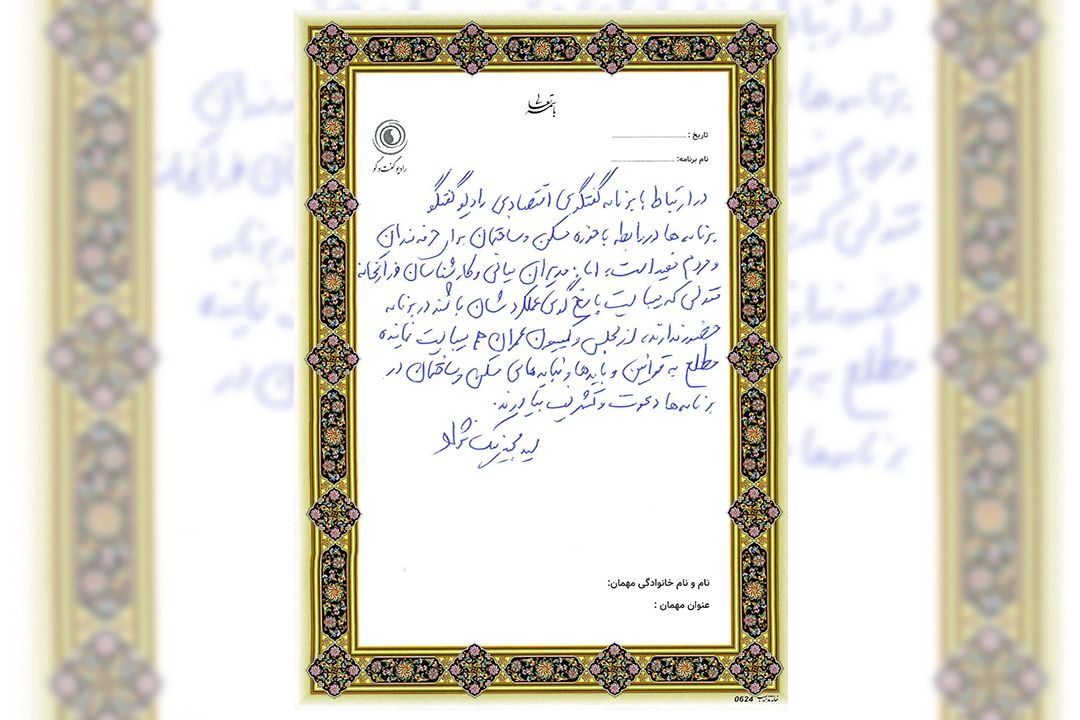 باسمه تعالی
تاریخ : ........................
نام برنامه: ........................
رادیو گفت و گو
در ارتباط با برنامه گفتگوی اقتصادی رادیو گفتگو
برنامه ها در رابطه با حوزه مسکن و ساختمان برای حرفه مندان
و مردم مفید است، اما مدیران میانی و کارشناسان وزارتخانه
که میبایست پاسخ گوی عملکردشان باشند در برنامه
حضور ندارند، از مجلس و کمیسیون عمران هم میبایست نماینده
مطلع به قوانین و بایدها و نبایدهای مسکن و ساختمان در
برنامه ها دعوت و تشریف بیاورند.
سید مجتبی نیک نژاد
نام و نام خانوادگی مهمان:
عنوان مهمان :
0624